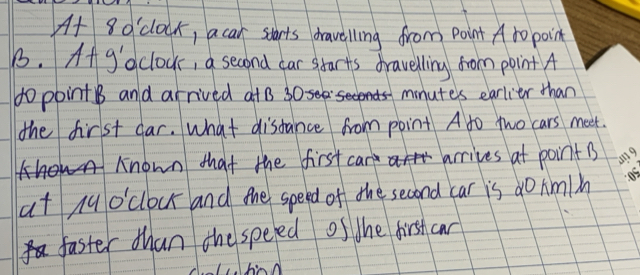 At 8 o'clock, a car starts travelling from point A to point
B. At 9 o'clock, a second car starts travelling from point A
to point B and arrived at B 30 seconds minutes earlier than
the first car. What distance from point A to two cars meet.
known Known that the first car arrives at point B
at 14 o'clock and the speed of the second car is 20 km/h
faster than the speed of the first car